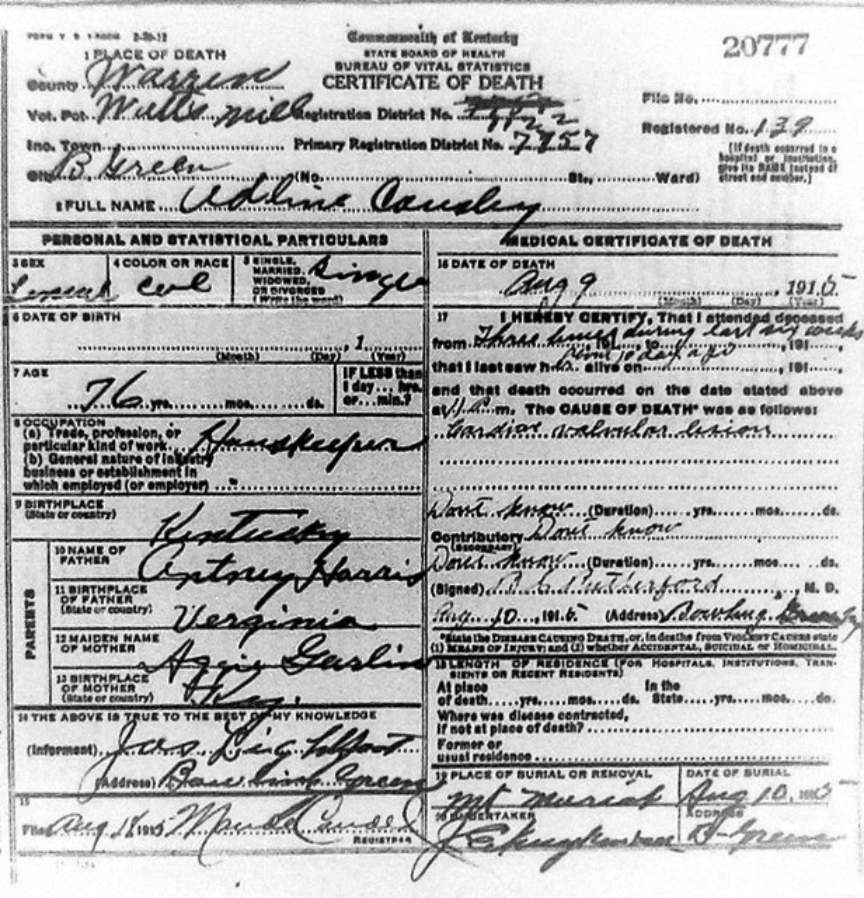 Commonwealth of Kentucky
20777
STATE BOARD OF HEALTH
BUREAU OF VITAL STATISTICS
CERTIFICATE OF DEATH
1 PLACE OF DEATH
County Warren
Vot. Pct. Mill Registration District No.
File No.
Registered No. 139
Inc. Town Primary Registration District No. 7757
(If death occurred in a hospital or institution, give its NAME instead of street and number.)
City B. Green (No. St., Ward)
2 FULL NAME Adline Causby
PERSONAL AND STATISTICAL PARTICULARS
3 SEX
4 COLOR OR RACE Col
5 SINGLE, MARRIED, WIDOWED, OR DIVORCED (Write the word) Single
6 DATE OF BIRTH
, 1
(Month) (Day) (Year)
7 AGE
76 yrs. mos. ds.
IF LESS than 1 day... hrs. or... min.?
8 OCCUPATION
(a) Trade, profession, or particular kind of work Housekeeper
(b) General nature of industry business or establishment in which employed (or employer)
9 BIRTHPLACE
(State or country) Kentucky
PARENTS
10 NAME OF FATHER Antney Harris
11 BIRTHPLACE OF FATHER (State or country) Verginia
12 MAIDEN NAME OF MOTHER Aggie Garlin
13 BIRTHPLACE OF MOTHER (State or country) Ky.
14 THE ABOVE IS TRUE TO THE BEST OF MY KNOWLEDGE
(Informant) Jas Lightfoot
(Address) Green
15
Filed Aug 1915
REGISTRAR
MEDICAL CERTIFICATE OF DEATH
16 DATE OF DEATH
Aug 9, 1915
(Month) (Day) (Year)
17 I HEREBY CERTIFY, That I attended deceased
from Three times during last six weeks
that I last saw h alive on , 191
and that death occurred on the date stated above
at m. The CAUSE OF DEATH* was as follows:
Cardiac valvular lesion
Don't know (Duration) yrs. mos. ds.
Contributory Don't know
(SECONDARY)
Don't know (Duration) yrs. mos. ds.
(Signed) Rutherford, M. D.
Aug 10, 1915 (Address) Bowling Green Ky
*State the DISEASE CAUSING DEATH, or, in deaths from VIOLENT CAUSES state
(1) MEANS OF INJURY; and (2) whether ACCIDENTAL, SUICIDAL or HOMICIDAL.
18 LENGTH OF RESIDENCE (FOR HOSPITALS, INSTITUTIONS, TRANSIENTS OR RECENT RESIDENTS)
At place of death yrs. mos. ds. In the State yrs. mos. ds.
Where was disease contracted, if not at place of death?
Former or usual residence
19 PLACE OF BURIAL OR REMOVAL
Mt Moriah
DATE OF BURIAL
Aug 10, 1915
20 UNDERTAKER
J E Kuykendall
ADDRESS
B-Green